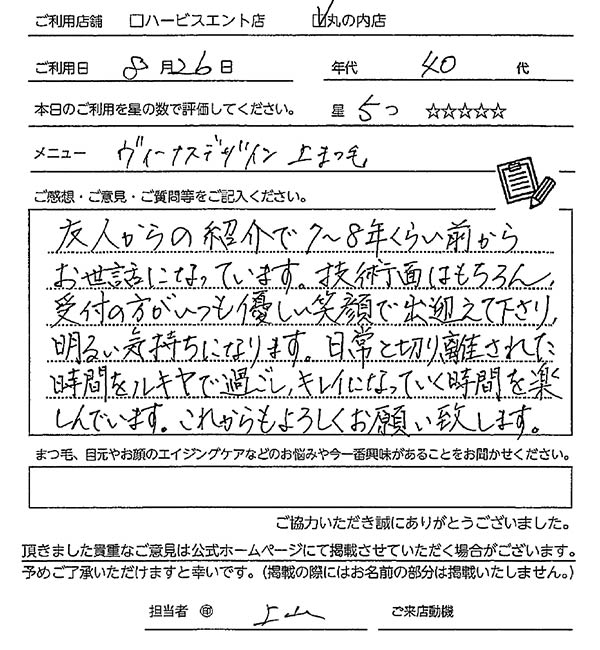 ご利用店舗 □ハービスエント店 ☑丸の内店
ご利用日 8月26日 年代 40代
本日のご利用を星の数で評価してください。 星 5つ ☆☆☆☆☆
メニュー ヴィーナスデザイン上まつ毛
ご感想・ご意見・ご質問等をご記入ください。
友人からの紹介で7〜8年くらい前から
お世話になっています。技術面はもちろん、
受付の方がいつも優しい笑顔で出迎えて下さり、
明るい気持ちになります。日常と切り離された
時間をルキヤで過ごし、キレイになっていく時間を楽
しんでいます。これからもよろしくお願い致します。
まつ毛、目元やお顔のエイジングケアなどのお悩みや今一番興味があることをお聞かせください。
ご協力いただき誠にありがとうございました。
頂きました貴重なご意見は公式ホームページにて掲載させていただく場合がございます。
予めご了承いただけますと幸いです。（掲載の際にはお名前の部分は掲載いたしません。）
担当者 ㊞ 上山 ご来店動機